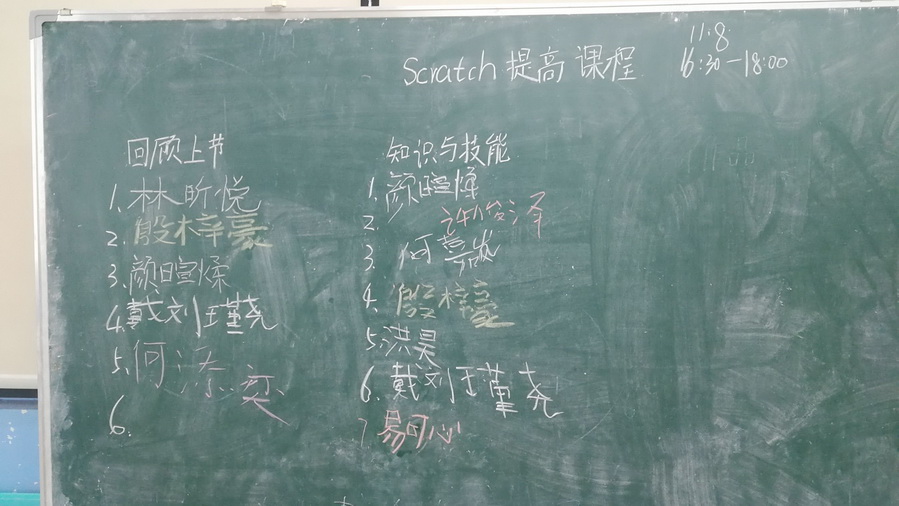 Scratch 提高 课程
11.8
16:30—18:00
回顾上节
1. 林昕悦
2. 殷梓豪
3. 颜暄烨
4. 戴刘瑾尧
5. 何添奕
6.
知识与技能
1. 颜暄烨
2. 许俊泽
3. 何
4. 殷梓豪
5. 洪昊
6. 戴刘瑾尧
7. 易可心